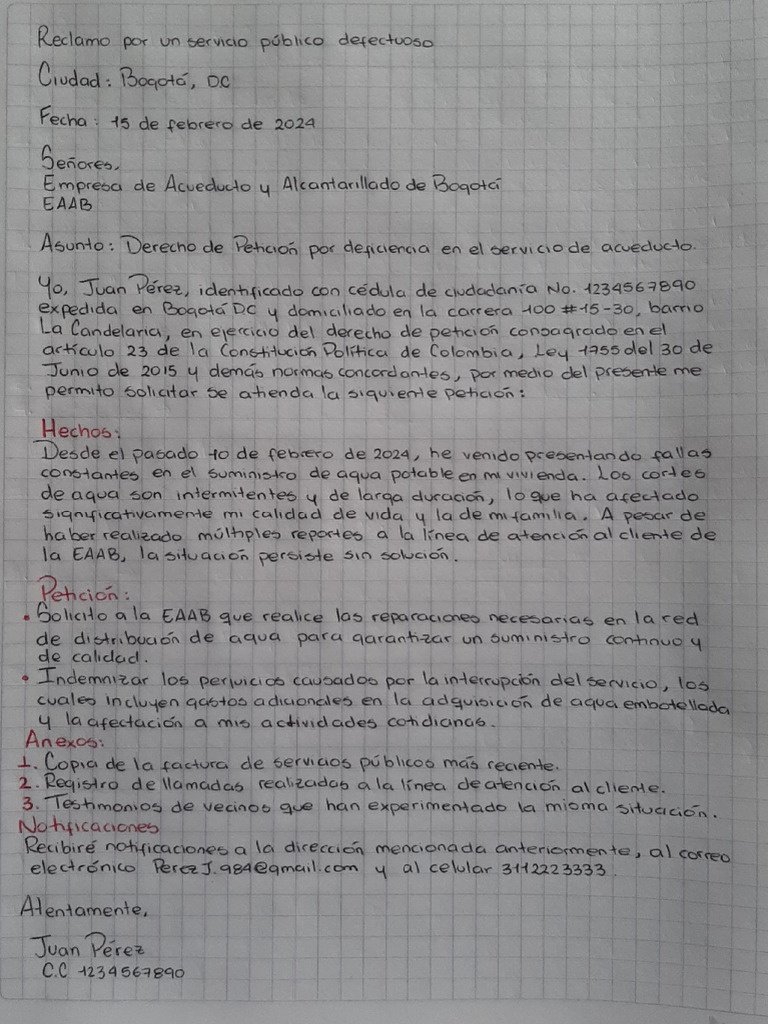 Reclamo por un servicio público defectuoso
Ciudad: Bogotá, DC
Fecha: 15 de febrero de 2024
Señores,
Empresa de Acueducto y Alcantarillado de Bogotá
EAAB
Asunto: Derecho de Petición por deficiencia en el servicio de acueducto.
Yo, Juan Pérez, identificado con cédula de ciudadanía No. 1234567890
expedida en Bogotá DC y domiciliado en la carrera 100 #15-30, barrio
La Candelaria, en ejercicio del derecho de petición consagrado en el
artículo 23 de la Constitución Política de Colombia, Ley 1755 del 30 de
Junio de 2015 y demás normas concordantes, por medio del presente me
permito solicitar se atienda la siguiente petición:
Hechos:
Desde el pasado 10 de febrero de 2024, he venido presentando fallas
constantes en el suministro de agua potable en mi vivienda. Los cortes
de agua son intermitentes y de larga duración, lo que ha afectado
significativamente mi calidad de vida y la de mi familia. A pesar de
haber realizado múltiples reportes a la línea de atención al cliente de
la EAAB, la situación persiste sin solución.
Petición:
• Solicito a la EAAB que realice las reparaciones necesarias en la red
de distribución de agua para garantizar un suministro continuo y
de calidad.
• Indemnizar los perjuicios causados por la interrupción del servicio, los
cuales incluyen gastos adicionales en la adquisición de agua embotellada
y la afectación a mis actividades cotidianas.
Anexos:
1. Copia de la factura de servicios públicos más reciente.
2. Registro de llamadas realizadas a la línea de atención al cliente.
3. Testimonios de vecinos que han experimentado la misma situación.
Notificaciones
Recibiré notificaciones a la dirección mencionada anteriormente, al correo
electrónico PerezJ.984@gmail.com y al celular 3112223333.
Atentamente,
Juan Pérez
C.C 1234567890